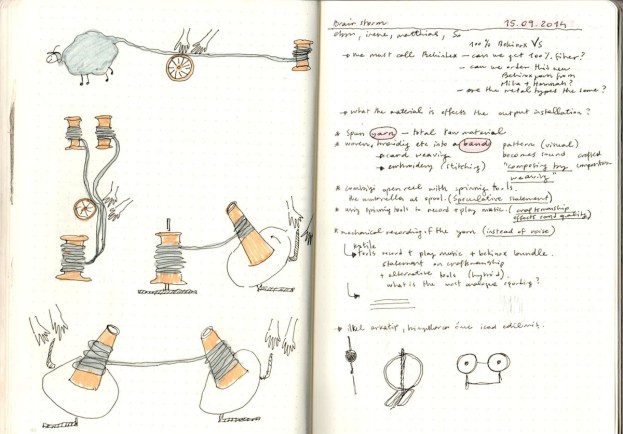 Brain storm 15.09.2014
ebru, irene, matthias, So
100% Bekinox VS
→ we must call Bekintex – can we get 100% fiber?
– can we order this new
Bekinox yarn from
Mika + Hannah?
– are the metal types the same?
→ what the material is effects the output installation?
* Spun yarn – total raw material
* woven, braiding etc into a band pattern (visual)
→ card weaving becomes sound crafted
→ embroidery (stitching) "composing by composition
weaving"
* combining open reel with spinning tools.
the umbrella as spool. (Speculative statement)
* using spinning tools to record + play music. (craftsmanship
effects sound quality)
* mechanical recording of the yarn (instead of noise)
textile
→ tools record + play music + bekinox bundle.
statement on craftsmanship
+ alternative tools (hybrid).
what is the most analogue
→ ilkel